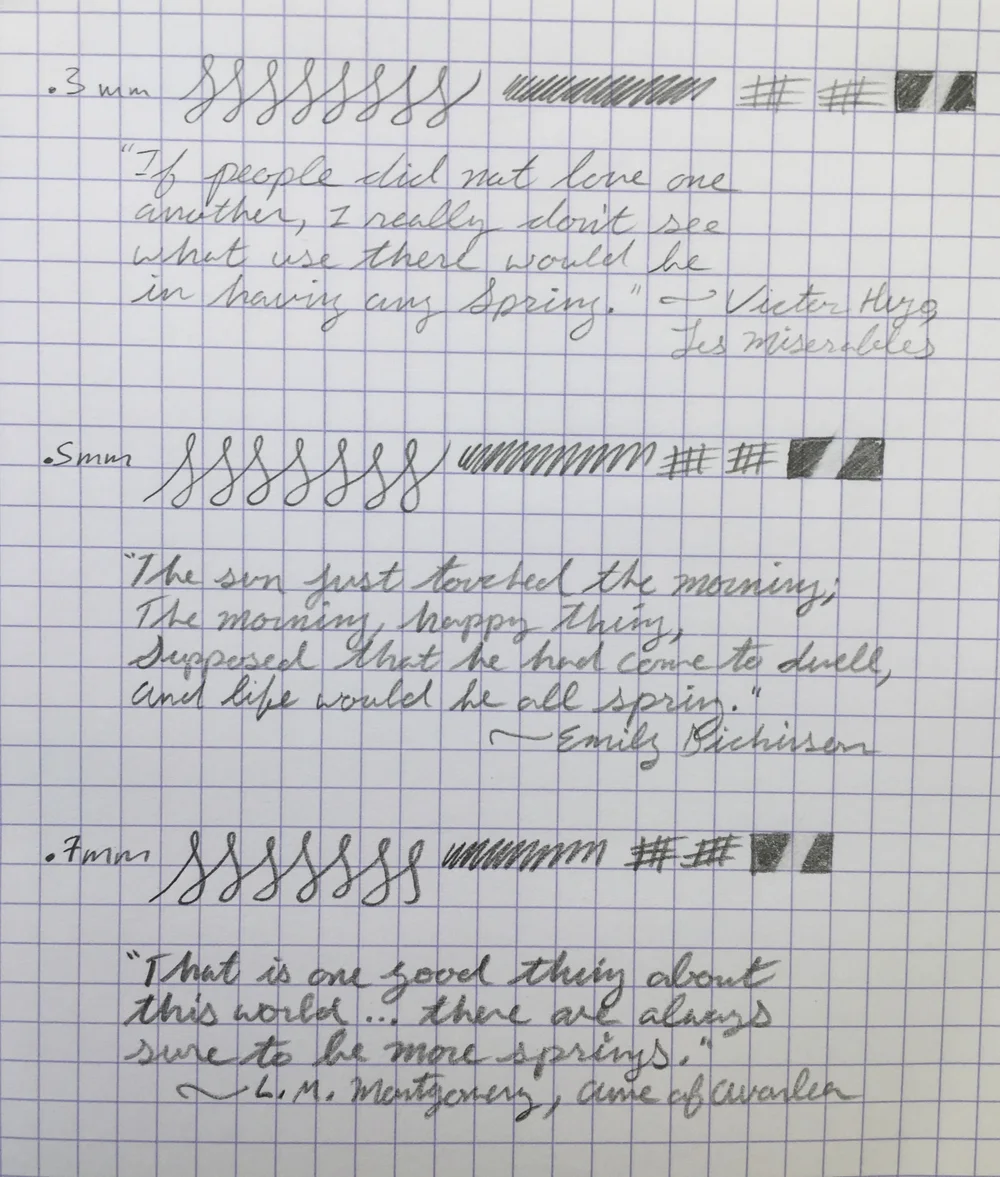 .3 mm
"If people did not love one
another, I really don't see
what use there would be
in having any Spring." ~ Victor Hugo,
Les Miserables
.5mm
"The sun just touched the morning;
The morning, happy thing,
Supposed that he had come to dwell,
and life would be all spring."
~ Emily Dickinson
.7mm
"That is one good thing about
this world... there are always
sure to be more springs."
~ L. M. Montgomery, Anne of Avonlea